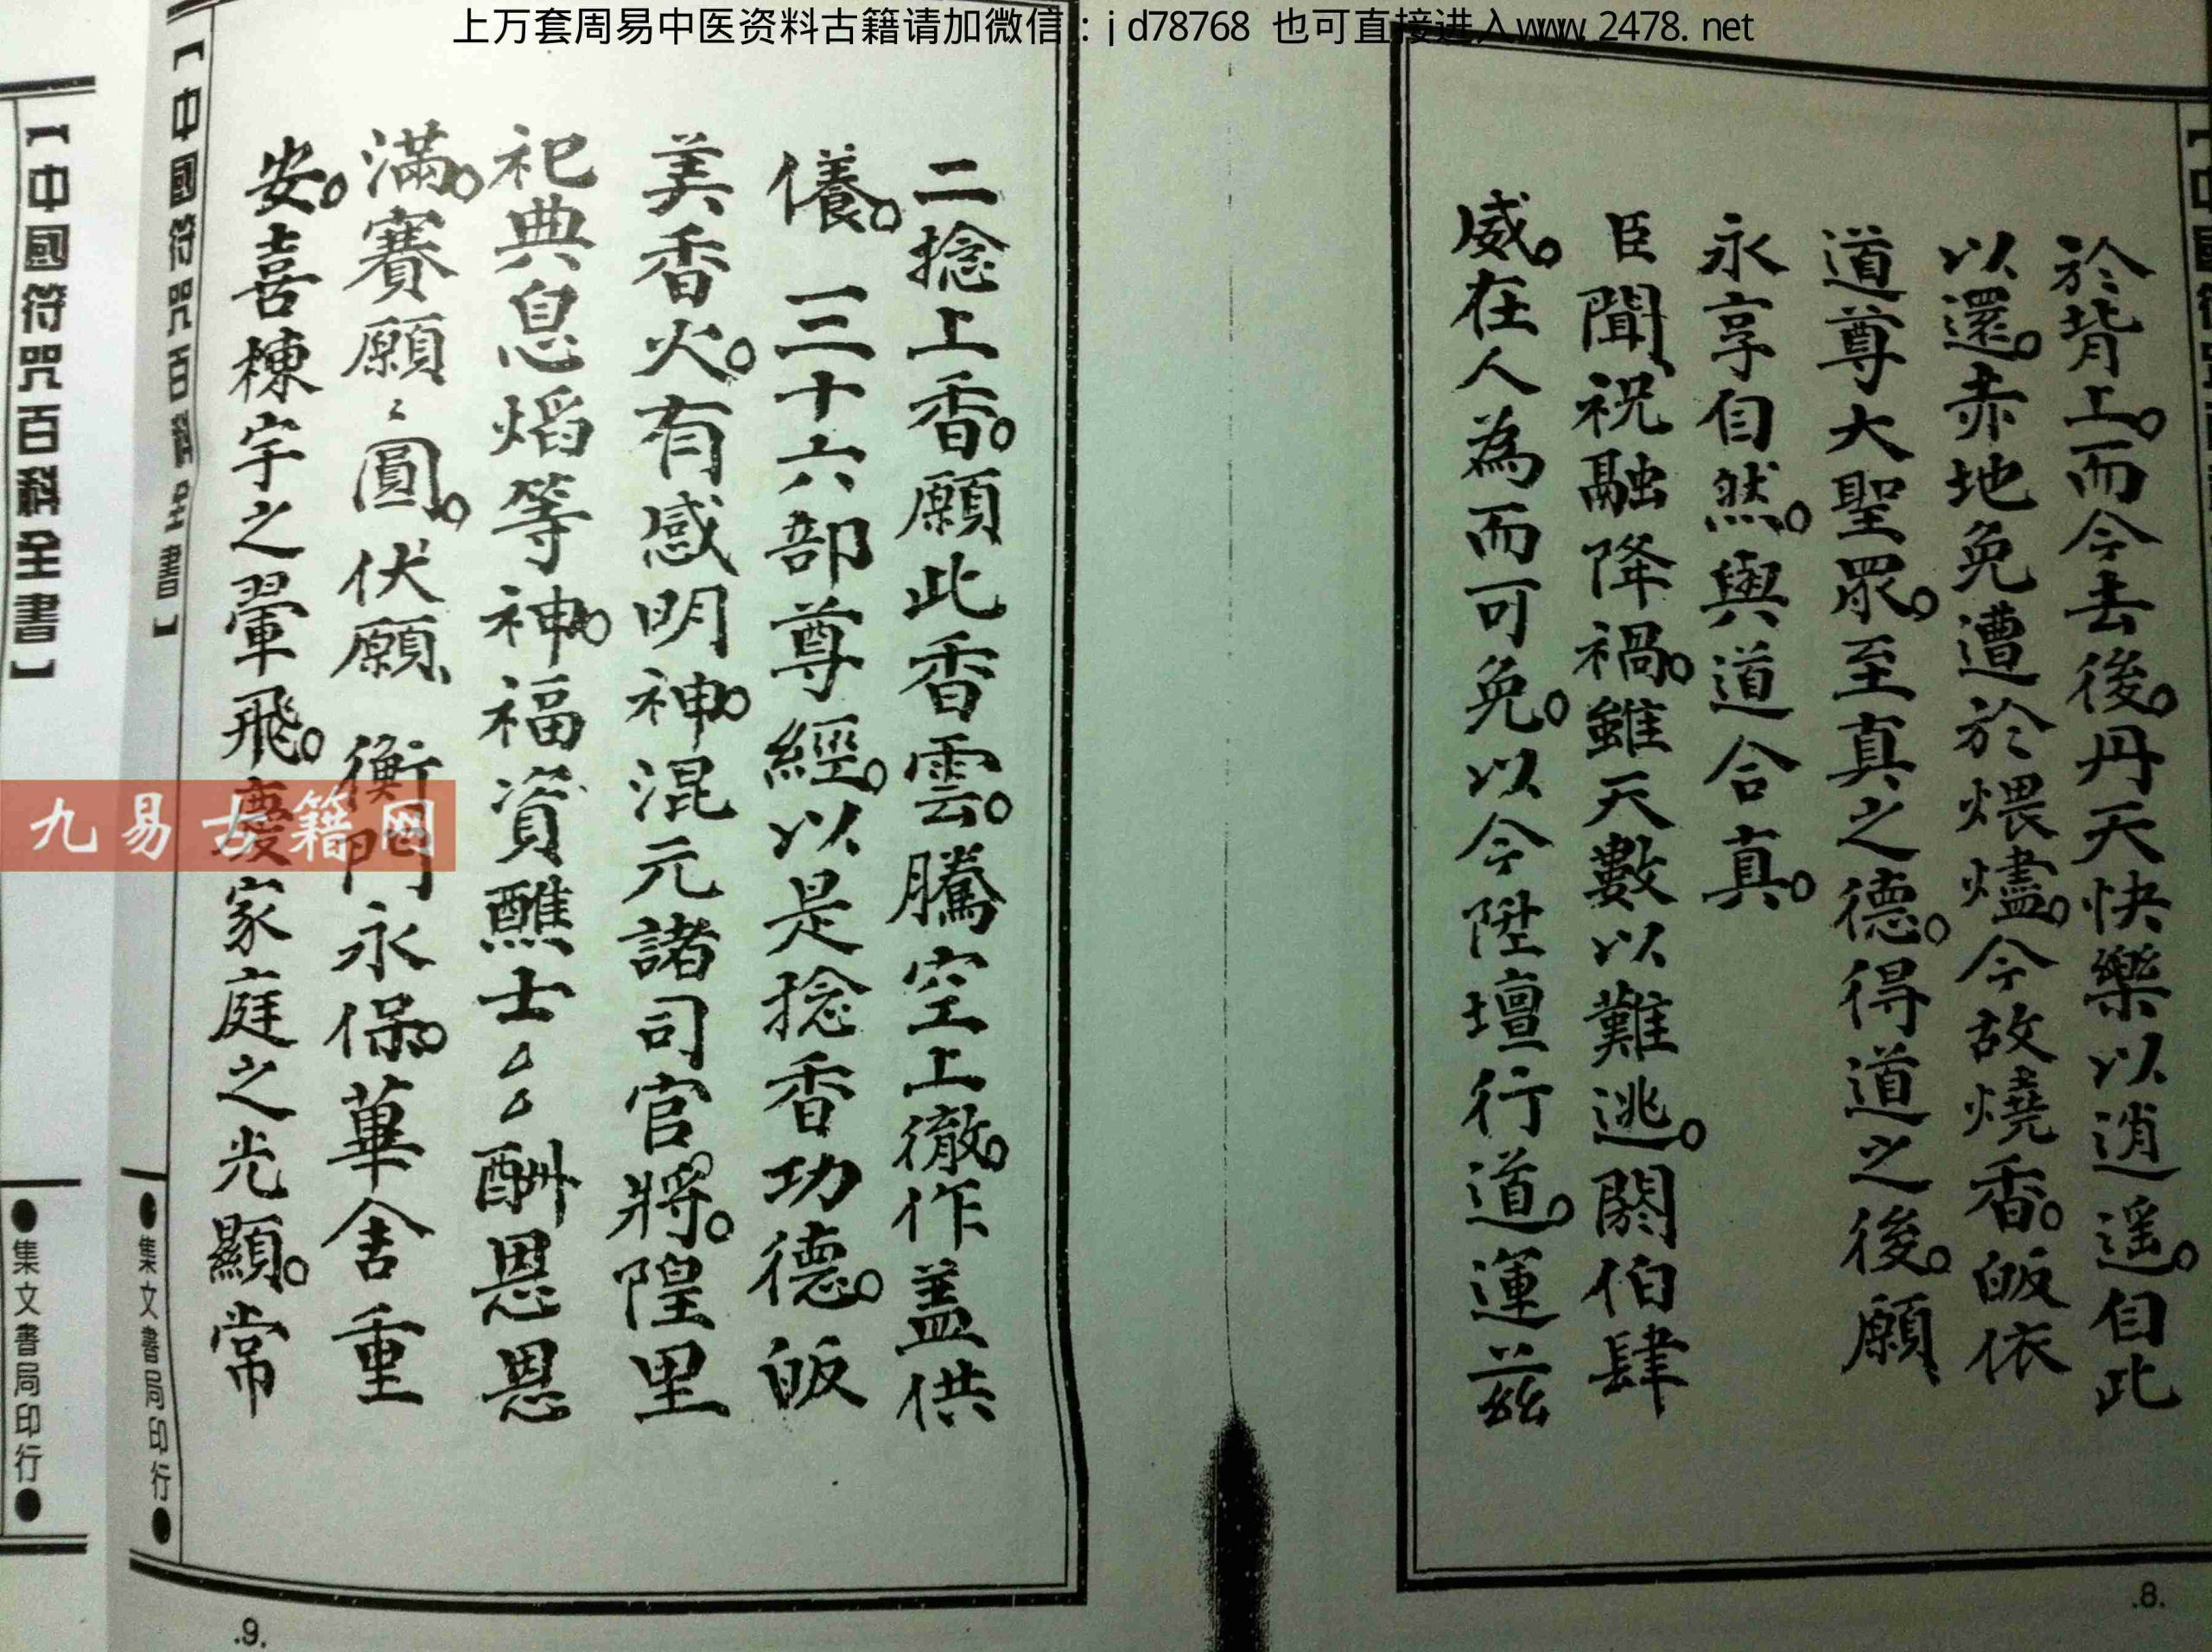 上万套周易中医资料古籍请加微信:jd78768 也可直接进入www.2478.net
於背上。而今去後。丹天快樂以逍遥。自此
以還。赤地免遭於煨燼。今故燒香。皈依
道尊大聖眾。至真之德。得道之後。願
永享自然。與道合真。
臣聞、祝融降禍。雖天數以難逃。閼伯肆
威。在人為而可免。以今陞壇行道。運茲
.8.
二捻上香。願此香雲。騰空上徹。作盖供
養。一三十六部尊經。以是捻香功德。皈
美香火。有感明神。混元諸司官將。隍里
祀典息熖等神。福資醮士〻〻酬恩恩
滿。賽願〻圓。伏願、衡門永保。蓽舍重
安。喜棟宇之翬飛。慶家庭之光顯。常
【中國符咒百科全書】
●集文書局印行●
.9.
【中國符咒百科全書】
●集文書局印行●
九易古籍网